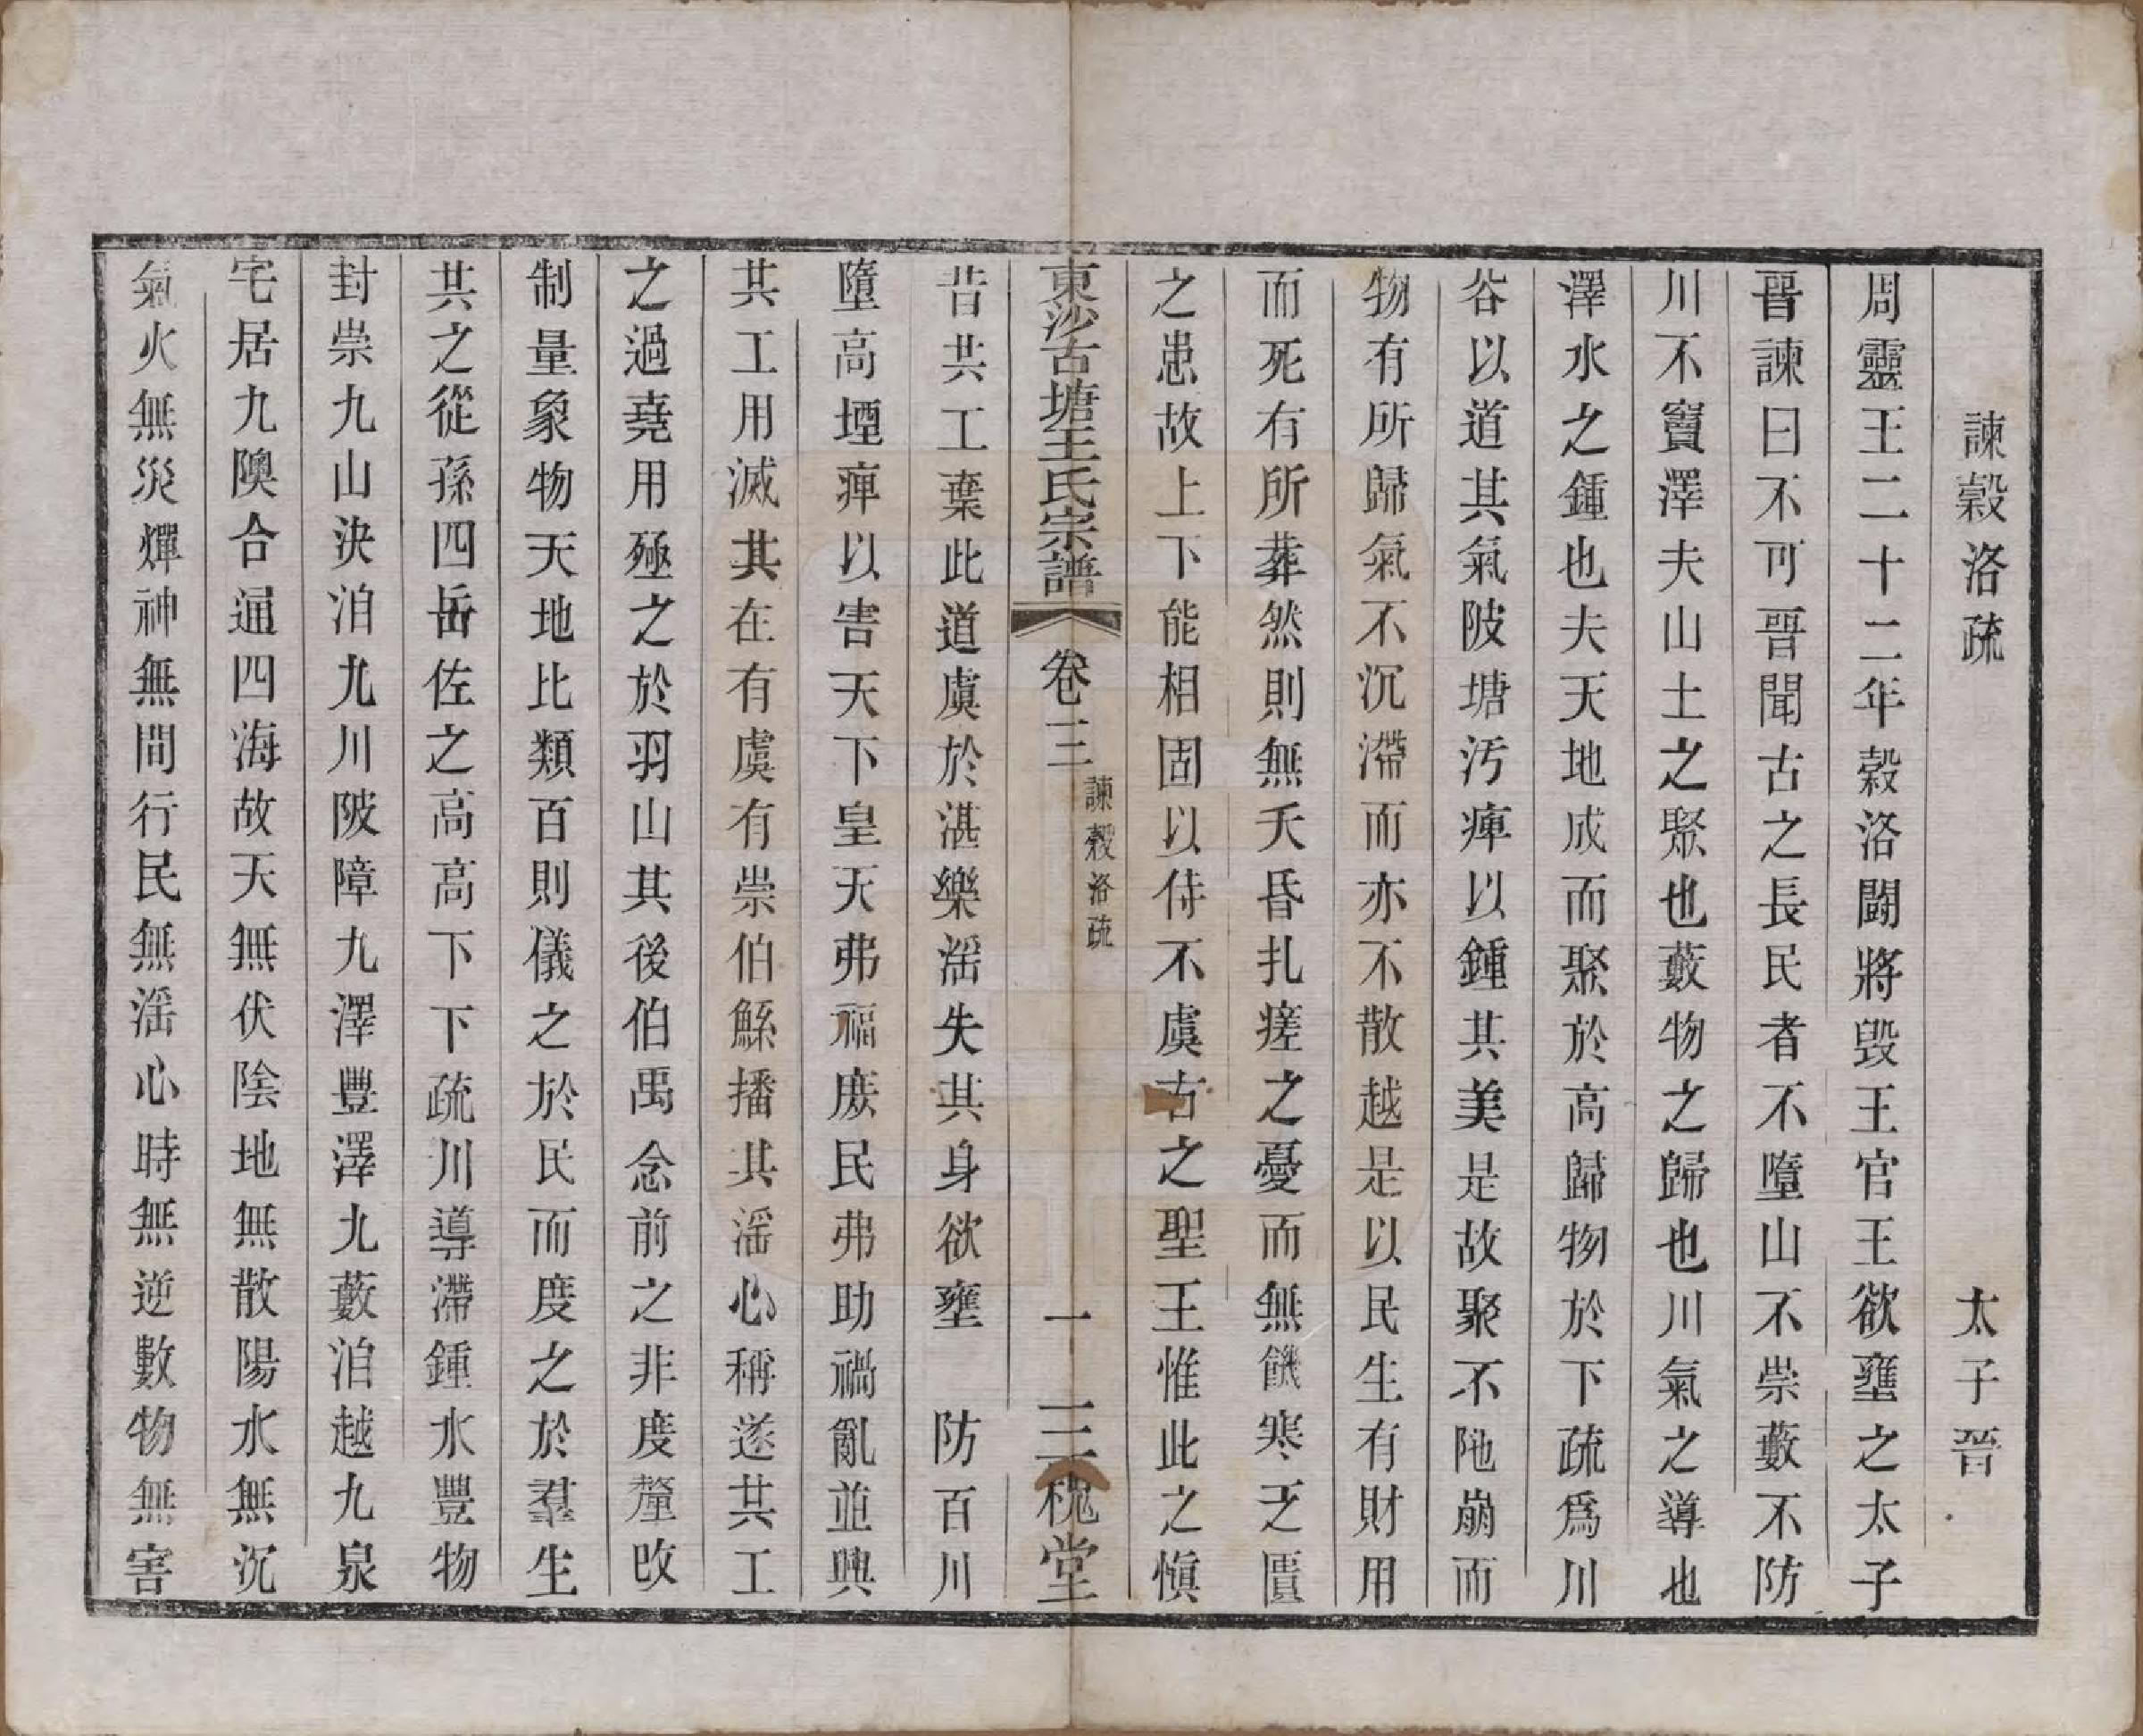 諫穀洛疏　太子晉
周靈王二十二年穀洛鬭將毀王官王欲壅之太子
晉諫曰不可晉聞古之長民者不墮山不崇藪不防
川不竇澤夫山土之聚也藪物之歸也川氣之導也
澤水之鍾也夫天地成而聚於高歸物於下疏爲川
谷以道其氣陂塘汚庳以鍾其美是故聚不阤崩而
物有所歸氣不沉滯而亦不散越是以民生有財用
而死有所葬然則無夭昏扎瘥之憂而無饑寒乏匱
之患故上下能相固以待不虞古之聖王惟此之愼
東沙古塘王氏宗譜　卷三　諫穀洛疏　一　三槐堂
昔共工棄此道虞於湛樂滛失其身欲壅　防百川
墮高堙痺以害天下皇天弗福庶民弗助禍亂並興
共工用滅其在有虞有崇伯鯀播其滛心稱遂共工
之過堯用殛之於羽山其後伯禹念前之非度釐改
制量象物天地比類百則儀之於民而度之於羣生
共之從孫四岳佐之高高下下疏川導滯鍾水豐物
封崇九山決汨九川陂障九澤豐澤九藪汨越九泉
宅居九隩合通四海故天無伏陰地無散陽水無沉
氣火無災燀神無間行民無滛心時無逆數物無害